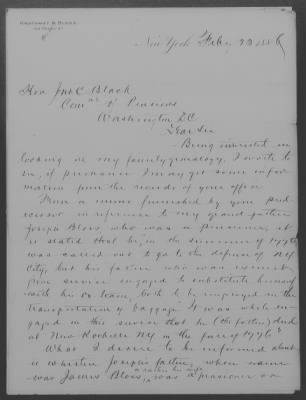 New York Feby 23 1886
Hon Jno C. Black
Comr of Pensions
Washington DC
Dear Sir
Being interested in
looking up my family genealogy, I write to
see, if perchance I may get some infor
mation from the records of your office
From a memo furnished by your pred
ecessor in reference to my grandfather
Joseph Bloss who was a pensioner, it
is stated that he, in the summer of 1776
was called out to go to the defense of N.Y.
City, but his father who was exempt
from service engaged to substitute himself
with his ox team, both to be employed in the
transportation of baggage. It was while en
gaged in this service that he (the father) died
at New Rochelle NY in the fall of 1776
What I desire to be informed about
is whether Joseph's father, whose name
was James Bloss or rather his wife was a pensioner or